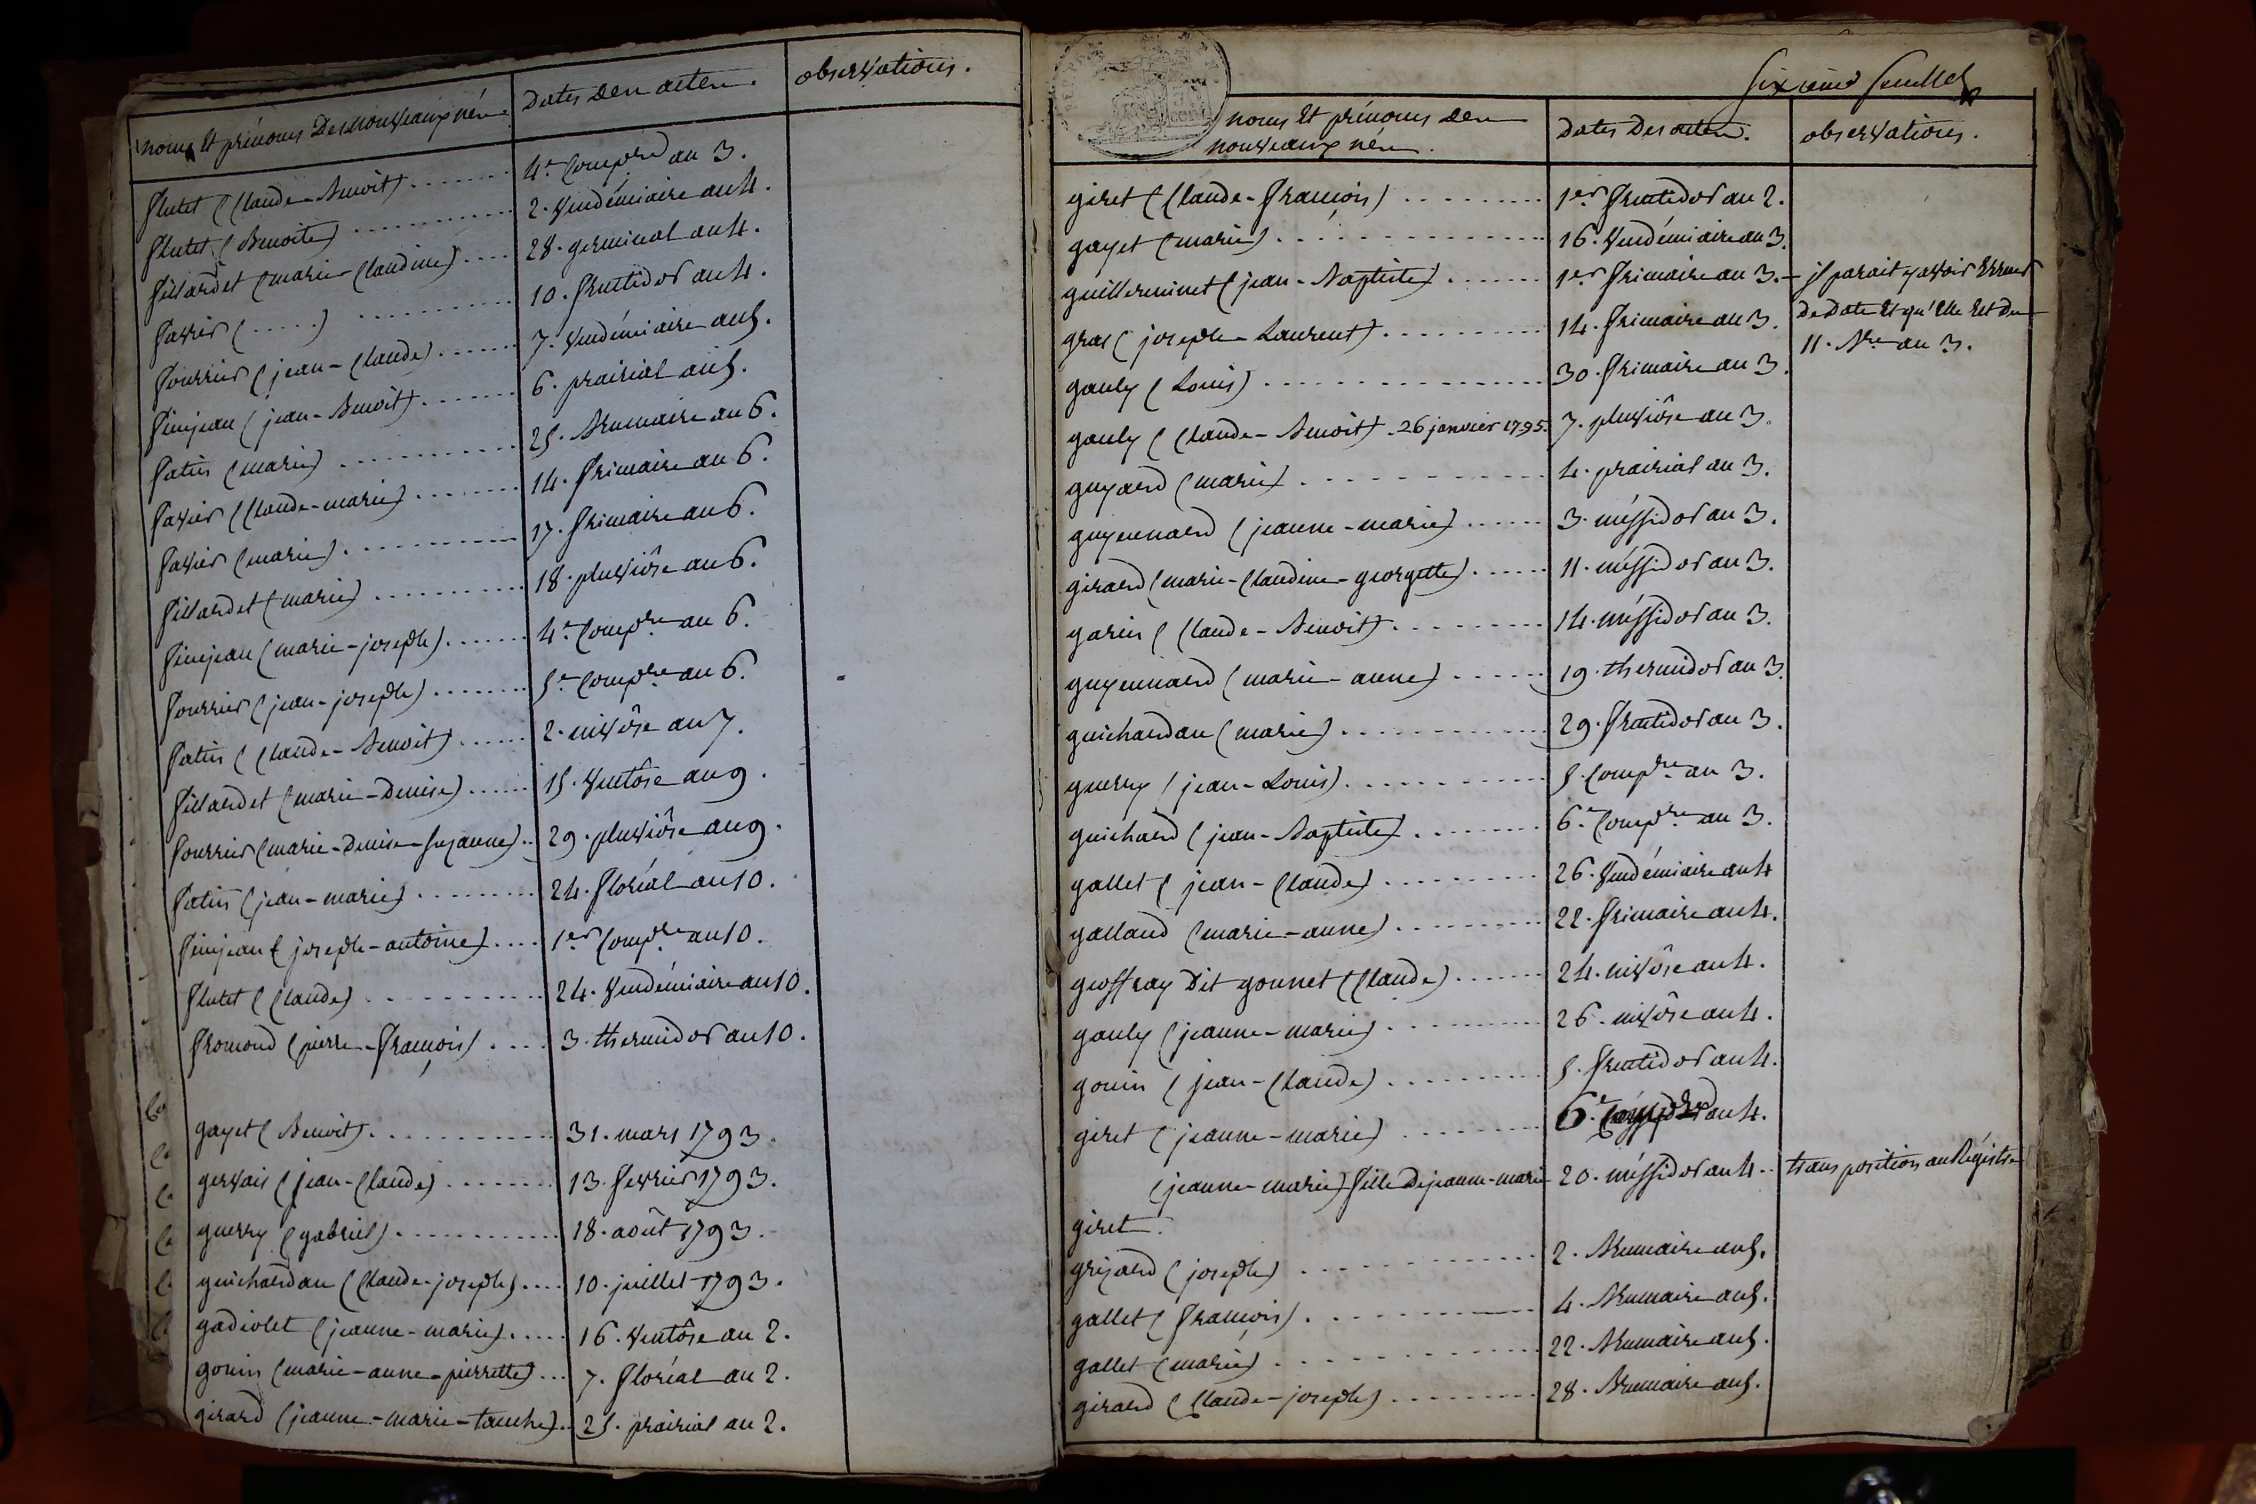 noms Et prénoms Des nouveaux nés
Dates Des actes.
observations.
flutet (Claude-Benoit) ....... 4.e Comp.re an 3.
flutet (Benoite) .......... 2. Vendémiaire an 4.
fillardet (marie-Claudine) .... 28. germinal an 4.
favier (.....) .......... 10. fructidor an 4.
fourrier (jean-Claude) ...... 7. Vendémiaire an 5.
finjean (jean-Benoit) ...... 6. prairial an 5.
fatin (marie) .......... 25. Brumaire an 6.
favier (Claude-marie) ...... 14. frimaire an 6.
favier (marie) .......... 17. frimaire an 6.
fillardet (marie) .......... 18. pluviôse an 6.
finjean (marie-joseph) ...... 4.e Comp.re an 6.
fourrier (jean-joseph) ....... 5.e Comp.re an 6.
fatin (Claude-Benoit) ..... 2. nivôse an 7.
fillardet (marie-Denise) ..... 15. Ventôse an 9.
fourrier (marie-Denise-suzanne) .. 29. pluviôse an 9.
fatin (jean-marie) ........ 24. floréal an 10.
finjean (joseph-antoine) .... 1.er Comp.re an 10.
flutet (Claude) .......... 24. Vendémiaire an 10.
fromond (pierre-françois) .... 3. thermidor an 10.
gayet (Benoit) .......... 31. mars 1793.
gervais (jean-Claude) ....... 13. fevrier 1793.
guerry (gabriel) .......... 18. août 1793.
guichardan (Claude-joseph) .... 10. juillet 1793.
gadiolet (jeanne-marie) ..... 16. Ventôse an 2.
gonin (marie-anne-pierrette) ... 7. floréal an 2.
girard (jeanne-marie-tanche) .. 25. prairial an 2.
Sixième feuillet
noms Et prénoms des
nouveaux nés.
Dates Des actes.
observations.
giret (Claude-François) ........ 1.er fructidor an 2.
gayet (marie) .............. 16. Vendémiaire an 3.
guillerminet (jean-Baptiste) ...... 1.er frimaire an 3. - il parait y avoir Erreur
De Date Et qu'Elle Est Du
gras (joseph-Laurent) ......... 14. frimaire an 3.
11. B.re an 3.
gauly (Louis) ............... 30. frimaire an 3.
gauly (Claude-Benoit) . 26 janvier 1795. 7. pluviôse an 3.
guyard (marie) ............ 4. prairial an 3.
guyennard (jeanne-marie) ...... 3. méssidor an 3.
girard (marie-Claudine-georgette) ...... 11. méssidor an 3.
garin (Claude-Benoit) ......... 14. méssidor an 3.
guyennard (marie-anne) ...... 19. thermidor an 3.
guichardan (marie) ............ 29. fructidor an 3.
guerry (jean-Louis) ............ 5. Comp.re an 3.
guichard (jean-Baptiste) ........ 6.e Comp.re an 3.
gallet (jean-Claude) .......... 26. Vendémiaire an 4
galland (marie-anne) ......... 22. frimaire an 4.
geoffray Dit gonnet (Claude) ...... 24. nivôse an 4.
gauly (jeanne-marie) .......... 26. nivôse an 4.
gonin (jean-Claude) .......... 5. fructidor an 4.
giret (jeanne-marie) ......... 6.e an 4.
(jeanne-marie) fille De jeanne-marie 20. méssidor an 4 .. transposition au Régistre
giret.
grizard (joseph) .............. 2. Brumaire an 5.
gallet (François) ............. 4. Brumaire an 5.
gallet (marie) .............. 22. Brumaire an 5.
girard (Claude-joseph) ......... 28. Brumaire an 5.